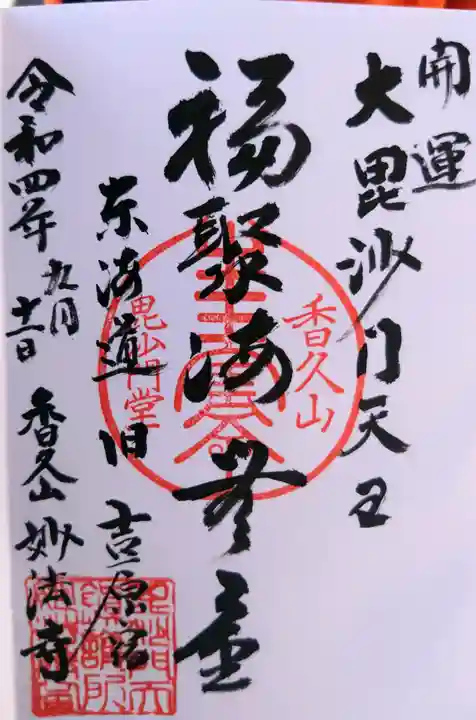 開運
大毘沙門天王
福聚海無量
東海道 旧 吉原宿
令和四年 九月十一日 香久山 妙法寺
香久山
毘沙門堂